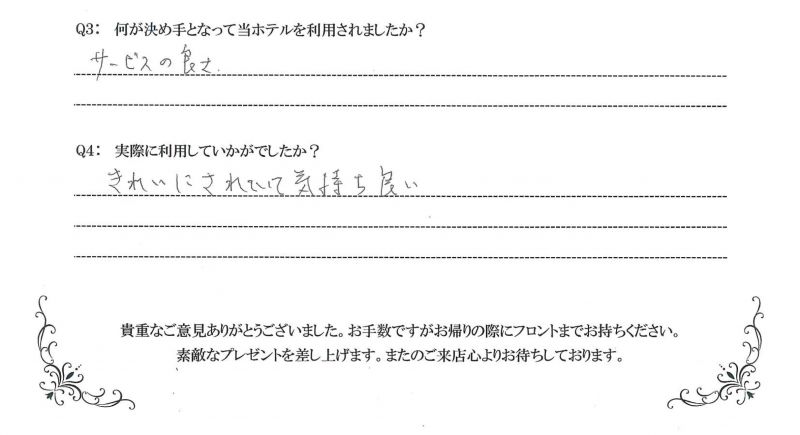 Q3: 何が決め手となって当ホテルを利用されましたか？
サービスの良さ.
Q4: 実際に利用していかがでしたか？
きれいにされていて気持ち良い
貴重なご意見ありがとうございました。お手数ですがお帰りの際にフロントまでお持ちください。
素敵なプレゼントを差し上げます。またのご来店心よりお待ちしております。